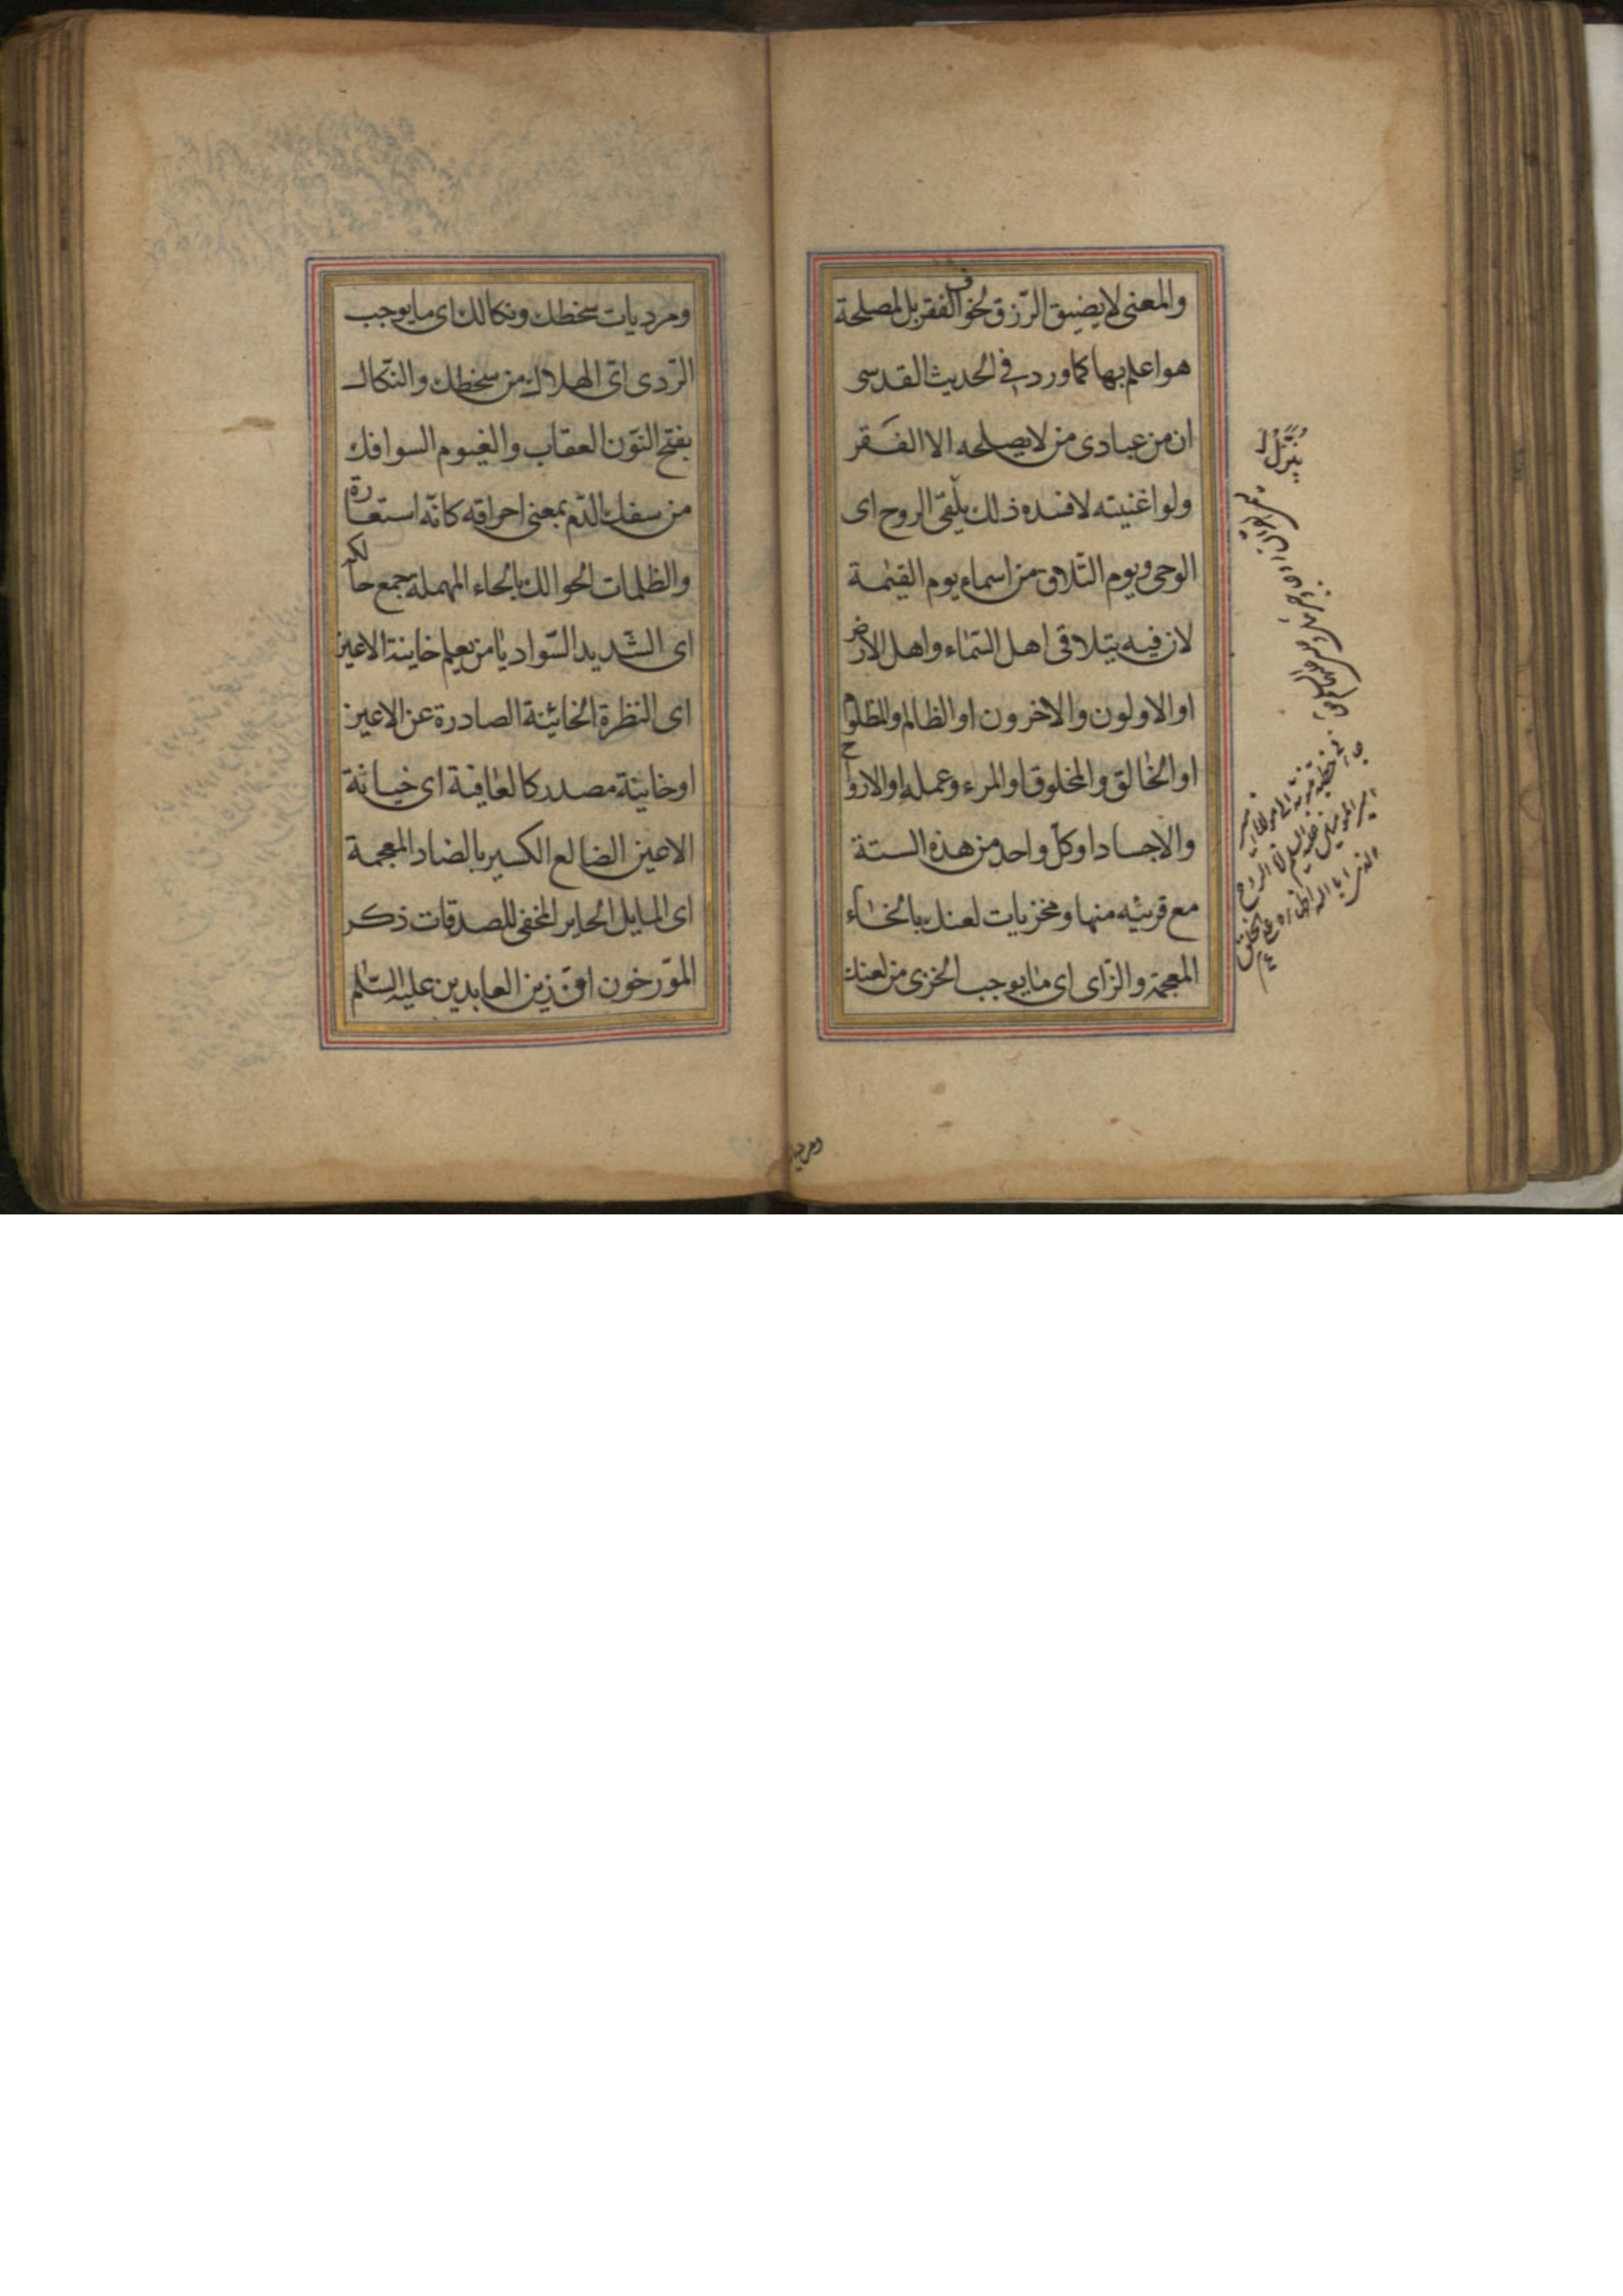 والمعنى لا يضيق الرّزق لخوف الفقر بل لمصلحة
هو اعلم بها كما ورد فى الحديث القدسى
ان من عبادى من لا يصلحه الا الفقر
ولو اغنيته لافسده ذلك يلقى الروح اى
الوحى ويوم التّلاق من اسماء يوم القيٰمة
لان فيه يتلاقى اهل السّماء واهل الارض
او الاولون والاخرون او الظالم والمظلوم
او الخالق والمخلوق او المرء وعمله او الارواح
والاجساد او كلّ واحد من هذه الستة
مع قرينه منها ومخزيات لعنك بالخاء
المعجمة والزّاى اى ما يوجب الخزى من لعنك
ومرديات سخطك ونكالك اى ما يوجب
الرّدى اى الهلاك من سخطك والنّكال
بفتح النّون العقاب والغيوم السوافك
من سفك الدّم بمعنى احراقه كانّه استعارة
والظلمات الحوالك بالحاء المهملة جمع حالك
اى الشّديد السّواد يا من يعلم خاينة الاعين
اى النظرة الخائنة الصادرة عن الاعين
او خاينة مصدر كالعافية اى خيانة
الاعين الضالع الكسير بالضاد المعجمة
اى المايل الحاير المخفى للصدقات ذكر
المورّخون انّ زين العابدين عليه السّلم